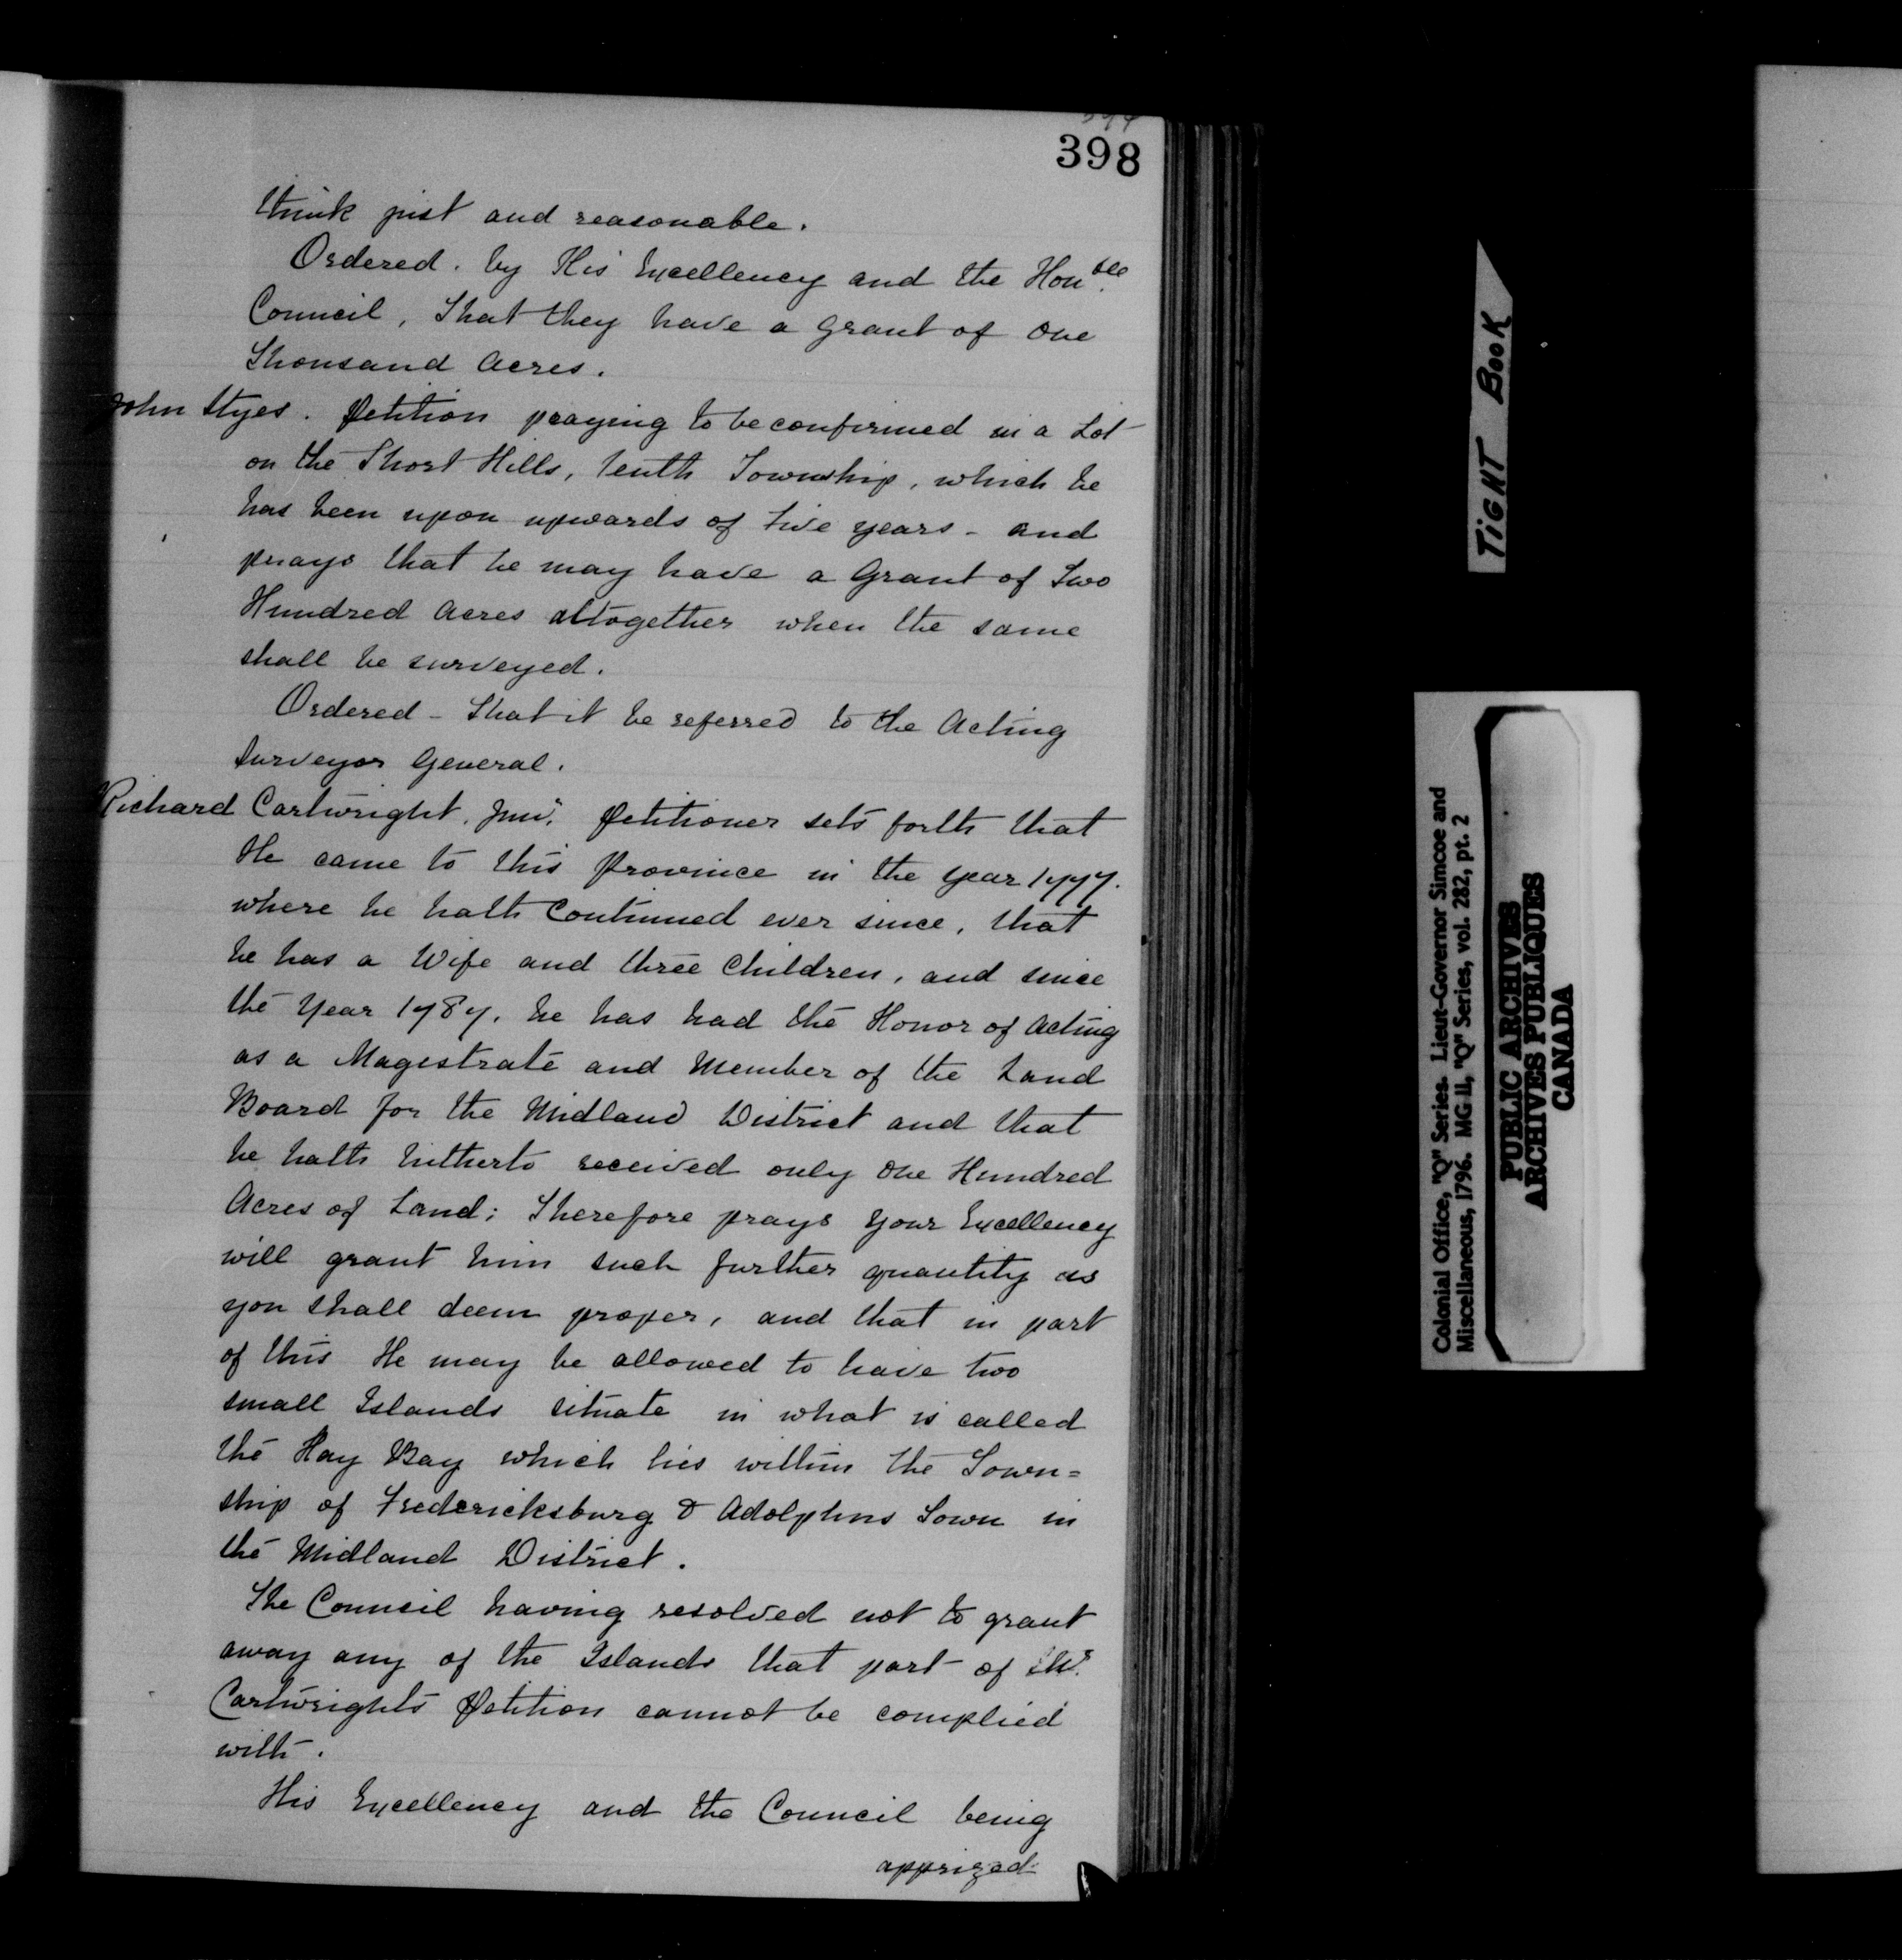 398
think just and reasonable.
Ordered. by His Excellency and the Honble.
Council, That they have a grant of one
Thousand Acres.
John Styes. Petition praying to be confirmed in a Lot
on the Short Hills, tenth Township, which he
has been upon upwards of five years - and
prays that he may have a Grant of Two
Hundred Acres altogether when the same
shall be surveyed.
Ordered - That it be referred to the Acting
Surveyor General.
Richard Cartwright, Junr. Petitioner sets forth that
He came to this Province in the year 1777.
where he hath Continued ever since, that
he has a Wife and three Children, and since
the Year 1787, he has had the Honor of Acting
as a Magistrate and Member of the Land
Board for the Midland District and that
he hath hitherto received only one Hundred
Acres of Land; Therefore prays Your Excellency
will grant him such further quantity as
you shall deem proper, and that in part
of this He may be allowed to have two
small Islands situate in what is called
the Hay Bay which lies within the Town=
ship of Fredericksburg & Adolphus Town in
the Midland District.
The Council having resolved not to grant
away any of the Islands that part of Mr.
Cartwrights Petition cannot be complied
with.
His Excellency and the Council being
apprized
TiGHT BOOK
Colonial Office, "Q" Series. Lieut-Governor Simcoe and
Miscellaneous, 1796. MG 11, "Q" Series, vol. 282, pt. 2
PUBLIC ARCHIVES
ARCHIVES PUBLIQUES
CANADA